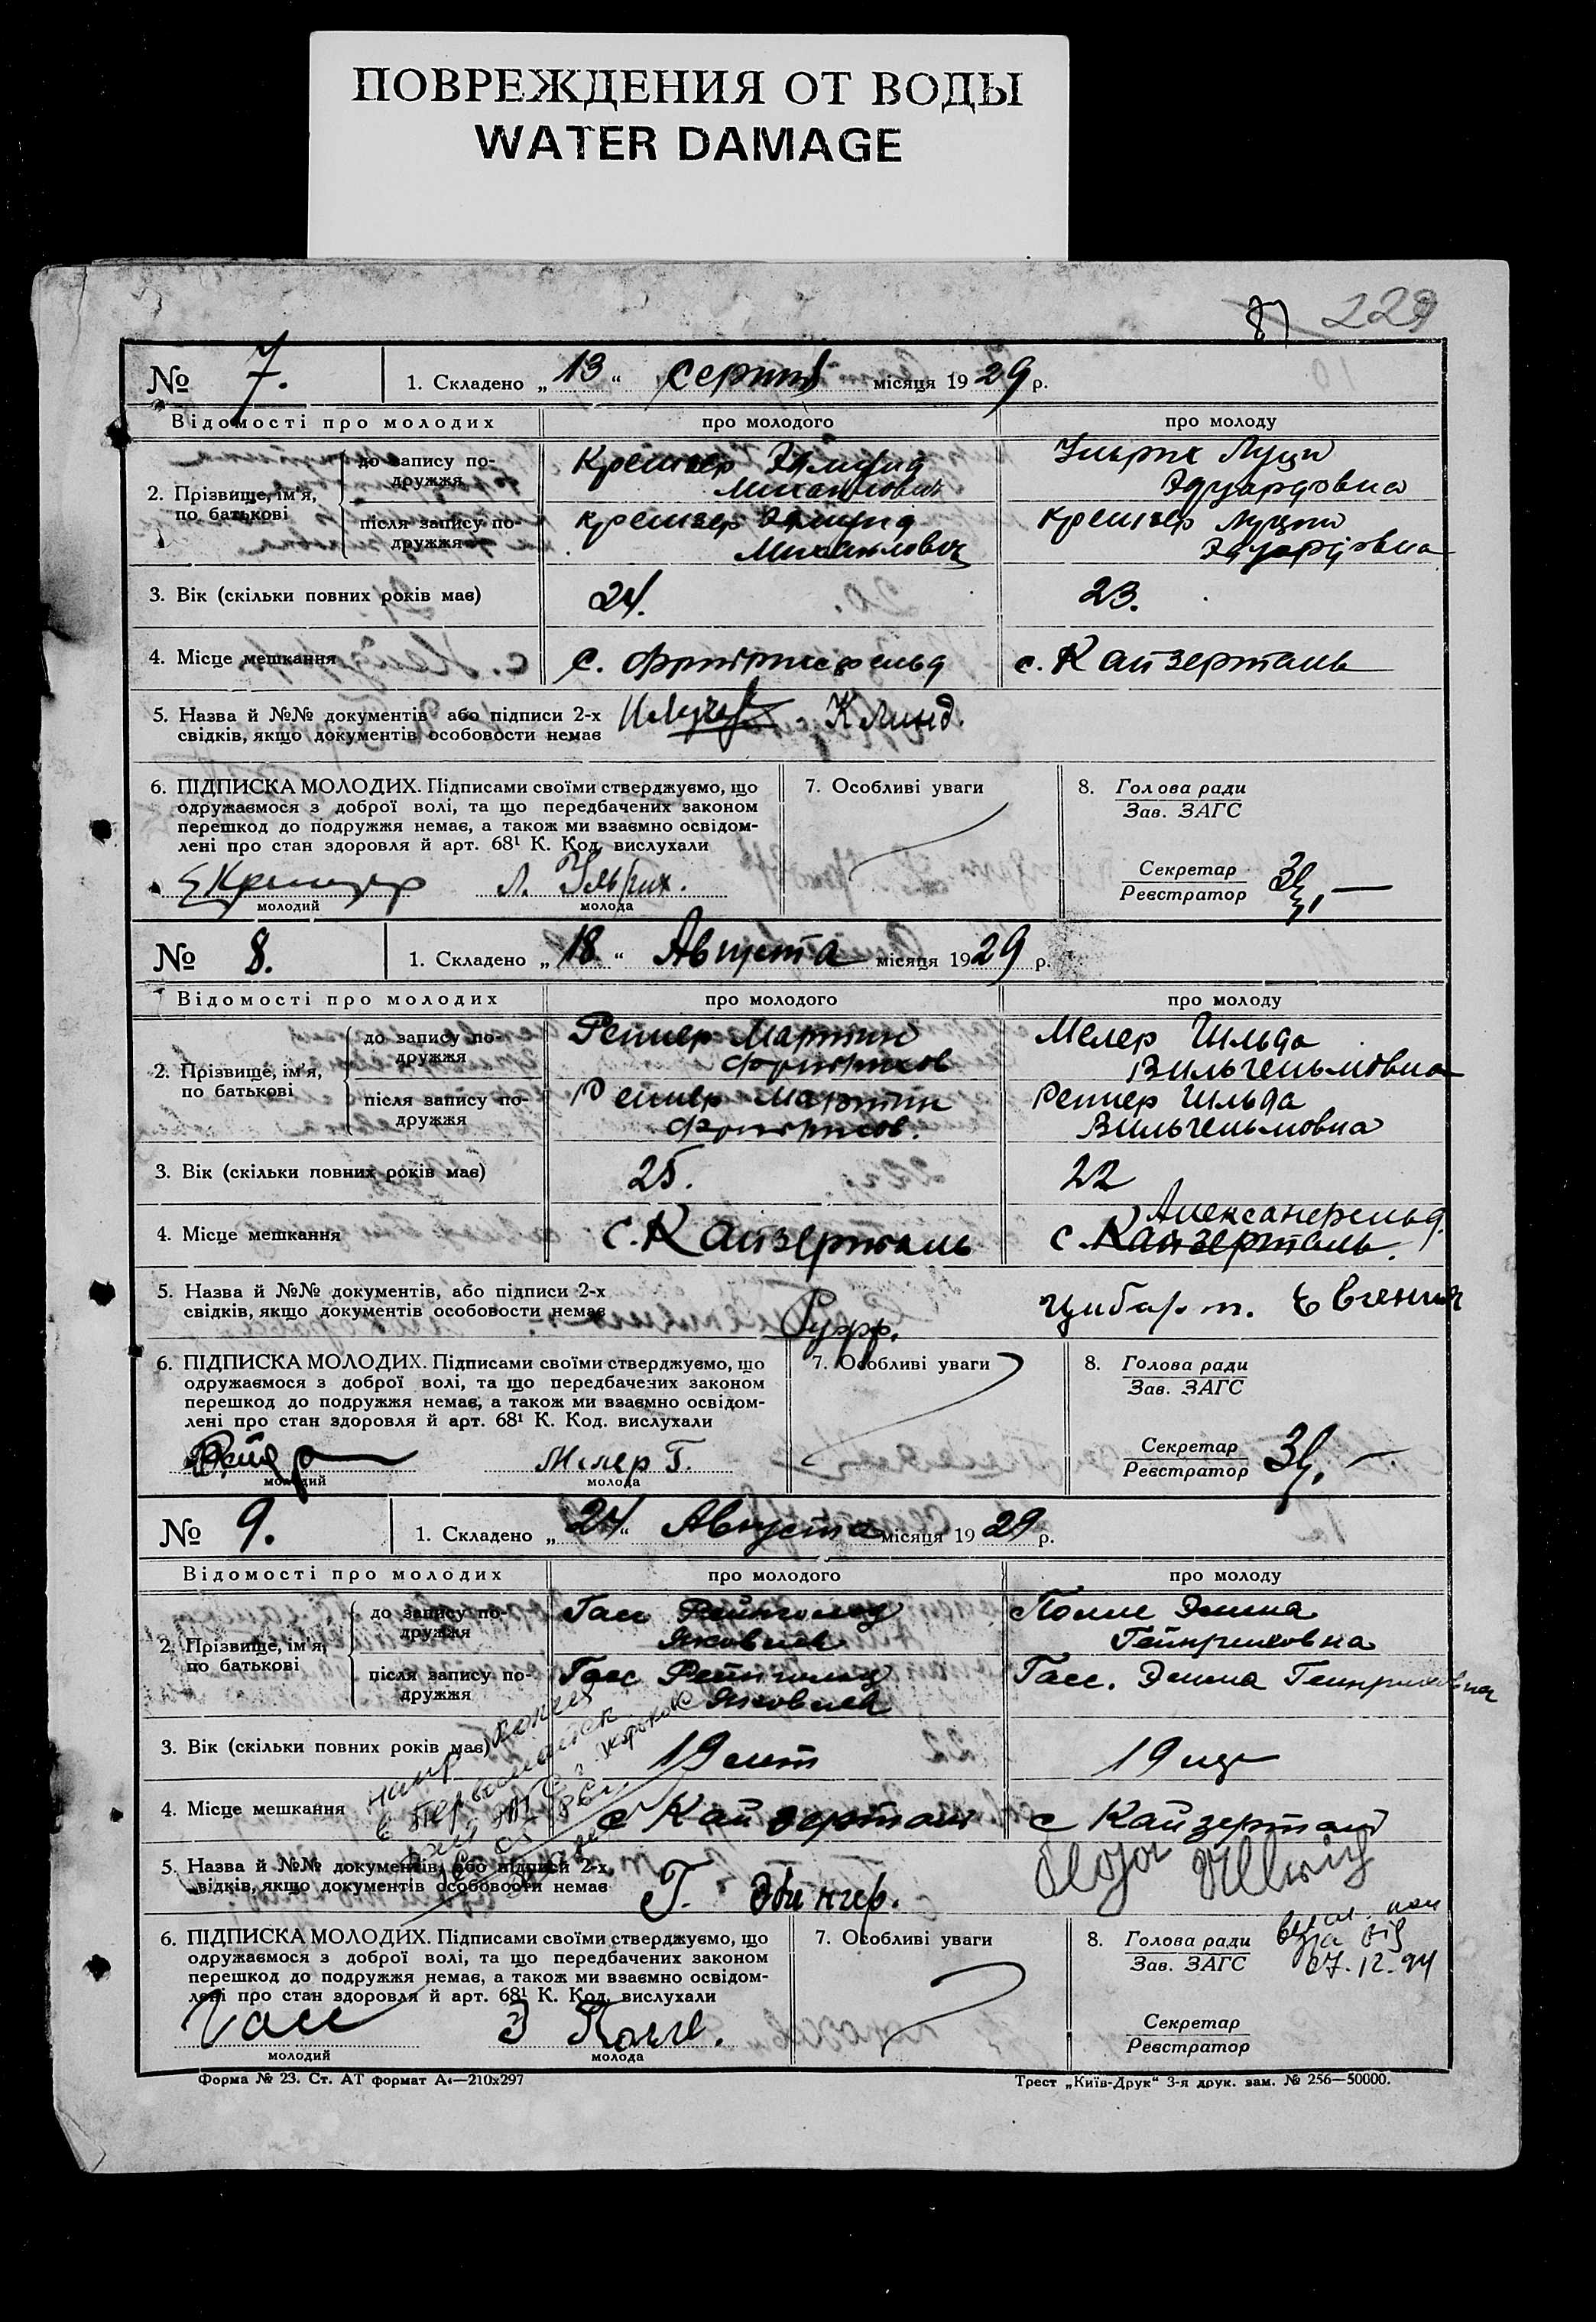 ПОВРЕЖДЕНИЯ ОТ ВОДЫ
WATER DAMAGE
229
№ 7. 1. Складено „13“ серпня місяця 1929 р.
Відомості про молодих про молодого про молоду
2. Прізвище, ім'я, по батькові
до запису подружжя Крейзер Эдмунд Михайлович Ульрих Луци Эдуардовна
після запису подружжя Крейзер Эдмунд Михайлович Крейзер Луции Эдуардовна
3. Вік (скільки повних років має) 24. 23.
4. Місце мешкання с. Фридрихсфельд с. Кайзерталь
5. Назва й №№ документів або підписи 2-х
свідків, якщо документів особовости немає К Линд.
6. ПІДПИСКА МОЛОДИХ. Підписами своїми стверджуємо, що
одружаємося з доброї волі, та що передбачених законом
перешкод до подружжя немає, а також ми взаємно освідом-
лені про стан здоровля й арт. 68¹ К. Код. вислухали
Л. Ульрих.
молодий молода
7. Особливі уваги
8. Голова ради
Зав. ЗАГС
Секретар
Реєстратор
№ 8. 1. Складено „18“ Августа місяця 1929 р.
Відомості про молодих про молодого про молоду
2. Прізвище, ім'я, по батькові
до запису подружжя Мартин Фридрихов Мелер Гильда Вильгельмовна
після запису подружжя Мартин Фридрихов. Гильда Вильгельмовна
3. Вік (скільки повних років має) 25. 22
Александерфельд
4. Місце мешкання с. Кайзерталь с. Кайзерталь
5. Назва й №№ документів, або підписи 2-х
свідків, якщо документів особовости немає Руфф. Евгения
6. ПІДПИСКА МОЛОДИХ. Підписами своїми стверджуємо, що
одружаємося з доброї волі, та що передбачених законом
перешкод до подружжя немає, а також ми взаємно освідом-
лені про стан здоровля й арт. 68¹ К. Код. вислухали
Мелер Г.
молодий молода
7. Особливі уваги
8. Голова ради
Зав. ЗАГС
Секретар
Реєстратор
№ 9. 1. Складено „24“ Августа місяця 1929 р.
Відомості про молодих про молодого про молоду
2. Прізвище, ім'я, по батькові
до запису подружжя Гасс Рейнгольд Яковлев Полле Эмма Гейнриховна
після запису подружжя Гасс Рейнгольд Яковлев Гасс. Эмма Гейнриховна
3. Вік (скільки повних років має) 19 лет 19
4. Місце мешкання с Кайзерталь с Кайзерталь
5. Назва й №№ документів, або підписи 2-х
свідків, якщо документів особовости немає Г. Эбингер. Olga Villwig
6. ПІДПИСКА МОЛОДИХ. Підписами своїми стверджуємо, що
одружаємося з доброї волі, та що передбачених законом
перешкод до подружжя немає, а також ми взаємно освідом-
лені про стан здоровля й арт. 68¹ К. Код. вислухали
Гасс Э Полле.
молодий молода
7. Особливі уваги
8. Голова ради
Зав. ЗАГС
від
07.12.94
Секретар
Реєстратор
Форма № 23. Ст. АТ формат А4—210x297
Трест „Київ-Друк“ 3-я друк. зам. № 256—50000.